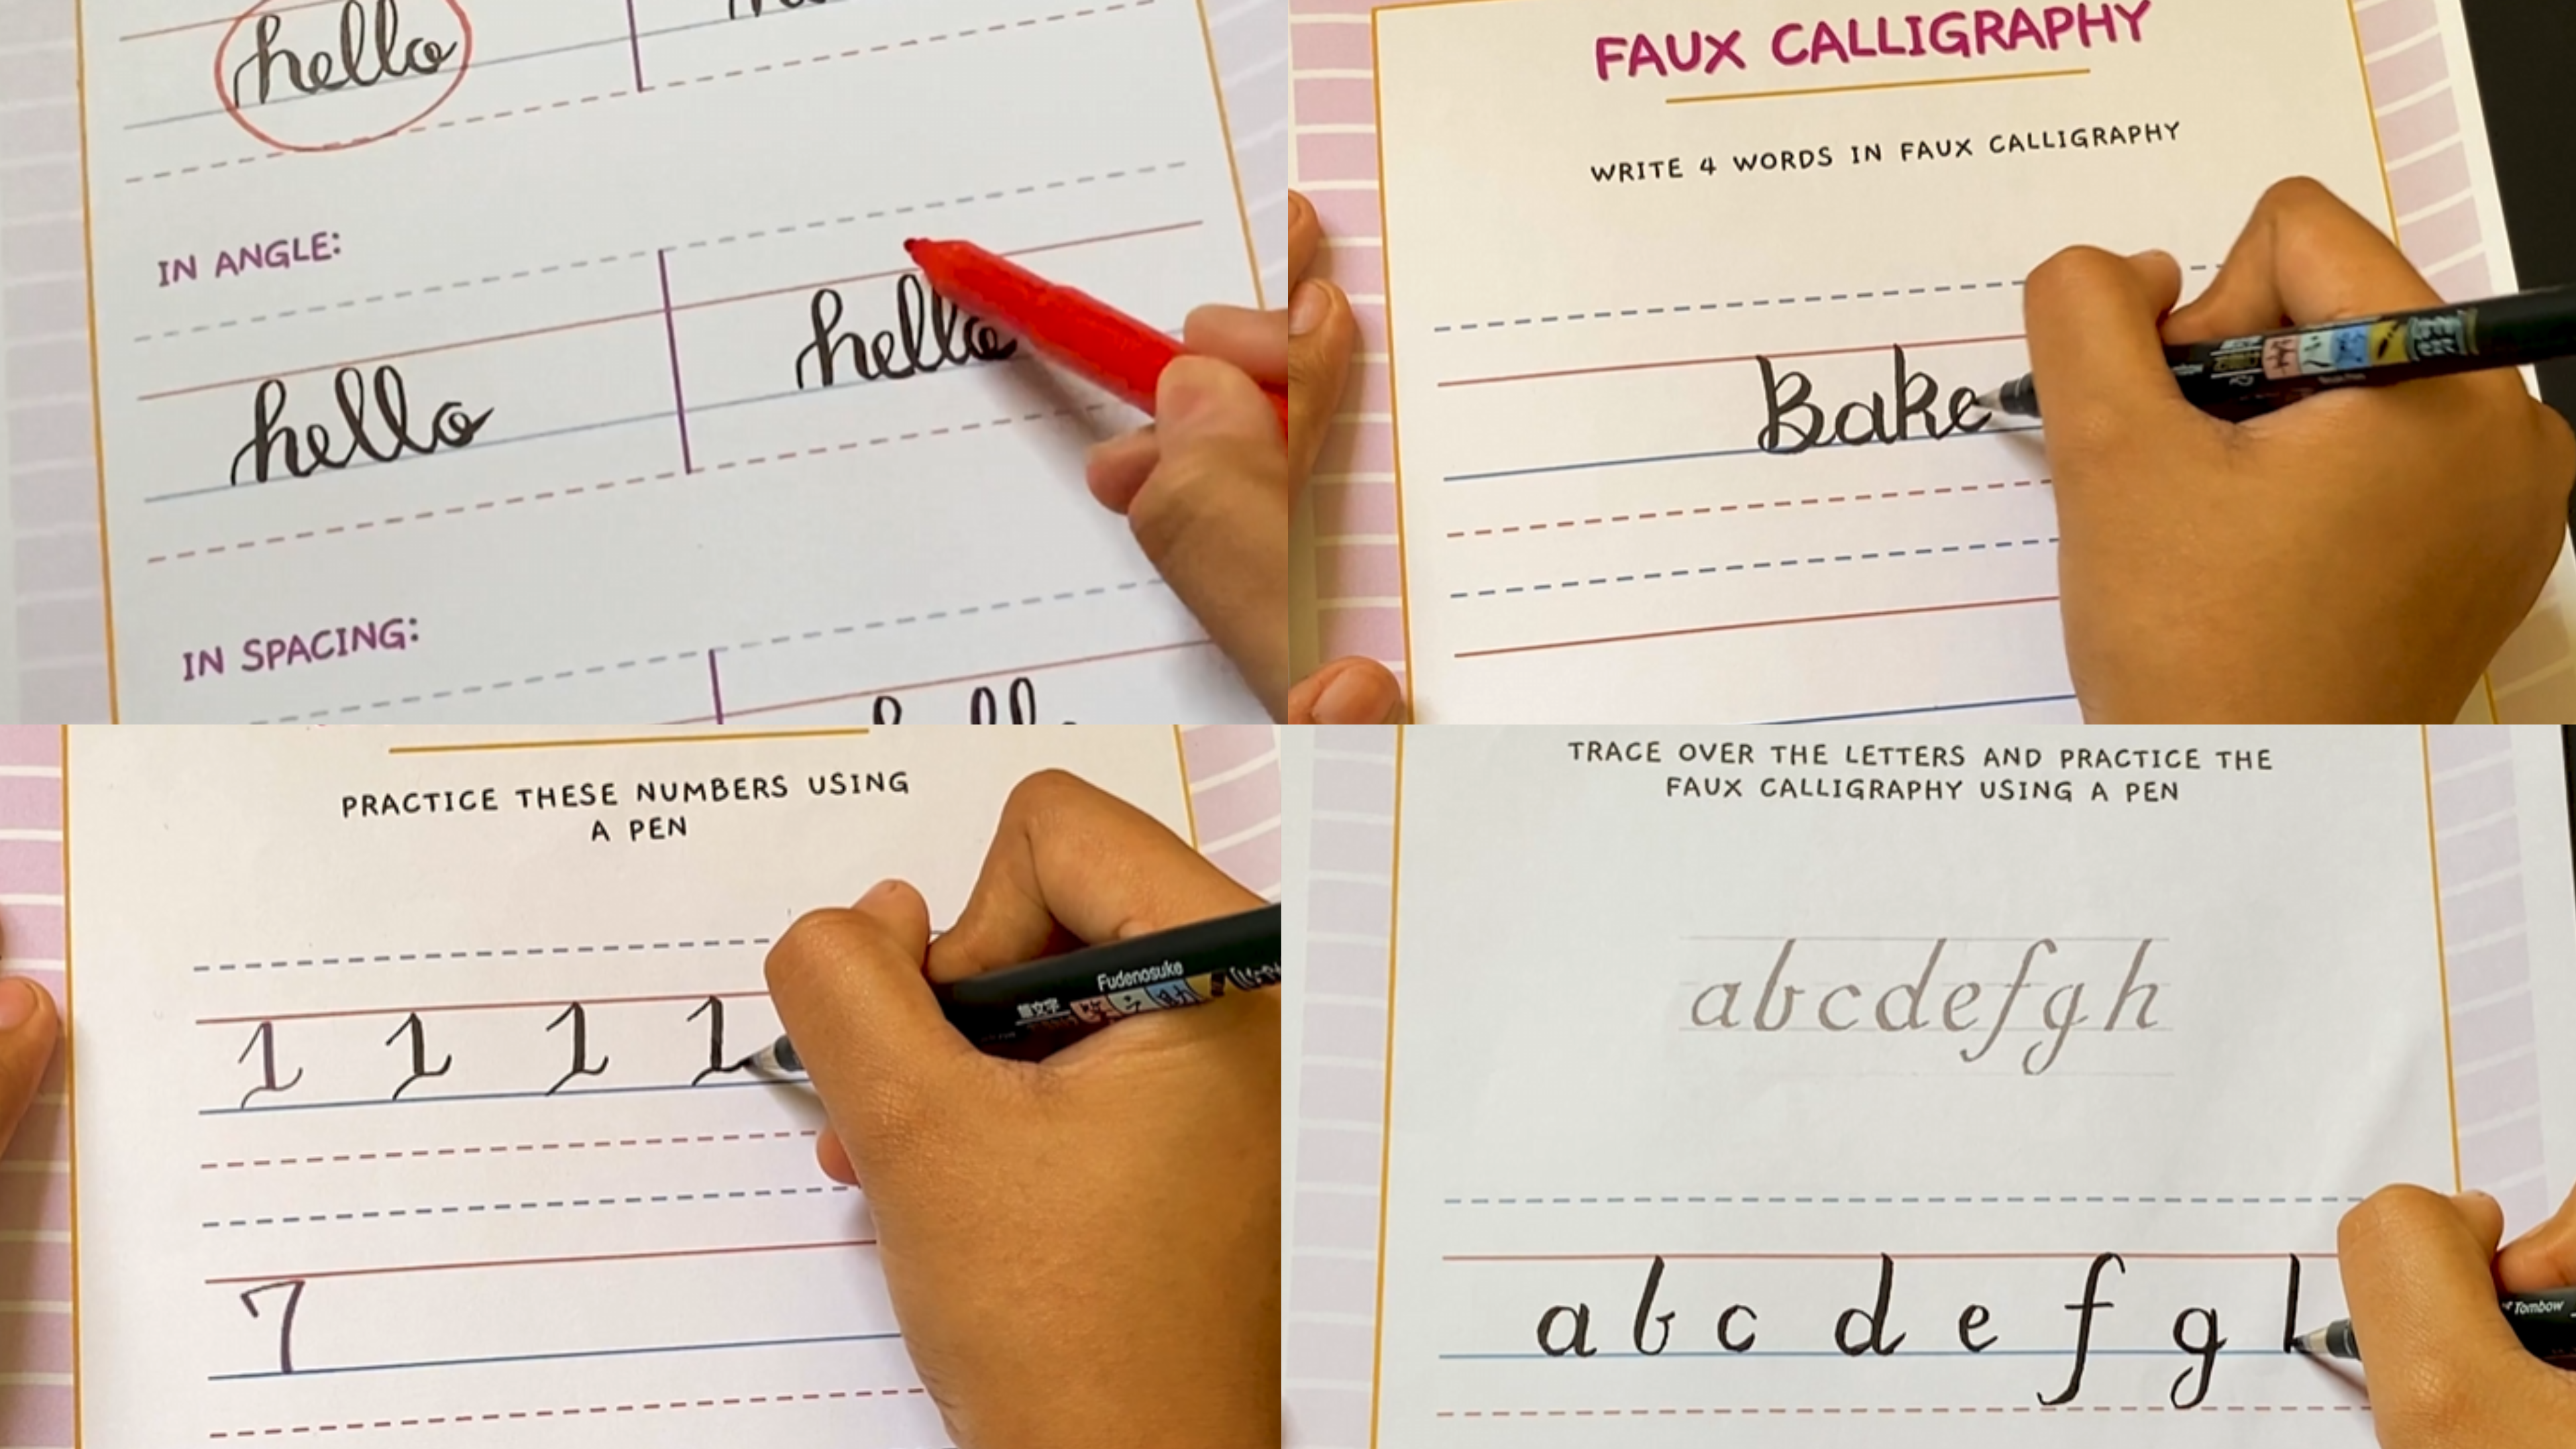 hello
IN ANGLE:
hello
hello
IN SPACING:
FAUX CALLIGRAPHY
WRITE 4 WORDS IN FAUX CALLIGRAPHY
Bake
PRACTICE THESE NUMBERS USING
A PEN
Fudenosuke
1 1 1 1
7
TRACE OVER THE LETTERS AND PRACTICE THE
FAUX CALLIGRAPHY USING A PEN
abcdefgh
a b c d e f g
Tombow